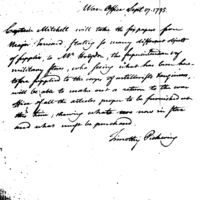 War Office Sept. 17. 1795.
Captain Mitchell will take the papers from
Major Rivardi, stating so many different objects
of supplies, to Mr. Hodgdon, the Superintendent of
military stores, who seeing what has been here
tofore supplied to the corps of artillerists & engineers,
will be able to make out a return to the war
office of all the articles proper to be furnished at
this time; shewing what are now in store
and what must be purchased.
Timothy Pickering